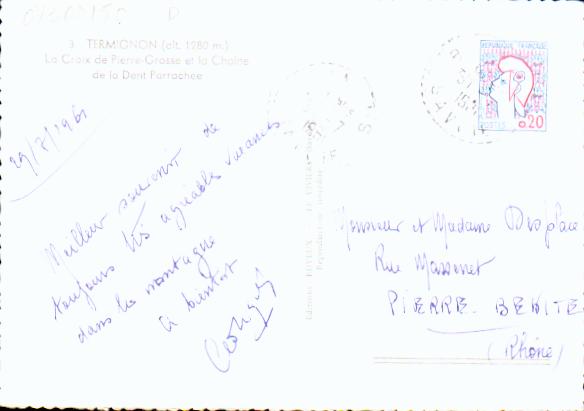 3 TERMIGNON (alt. 1280 m.)
La Croix de Pierre-Grosse et la Chaîne
de la Dent Parrachée
29/7/1961
Meilleur souvenir de
toujours très agréables vacances
dans la montagne
à bientôt
REPUBLIQUE FRANÇAISE
POSTES 0.20
Monsieur et Madame
Rue Massenet
PIERRE-BENITE
(Rhône)